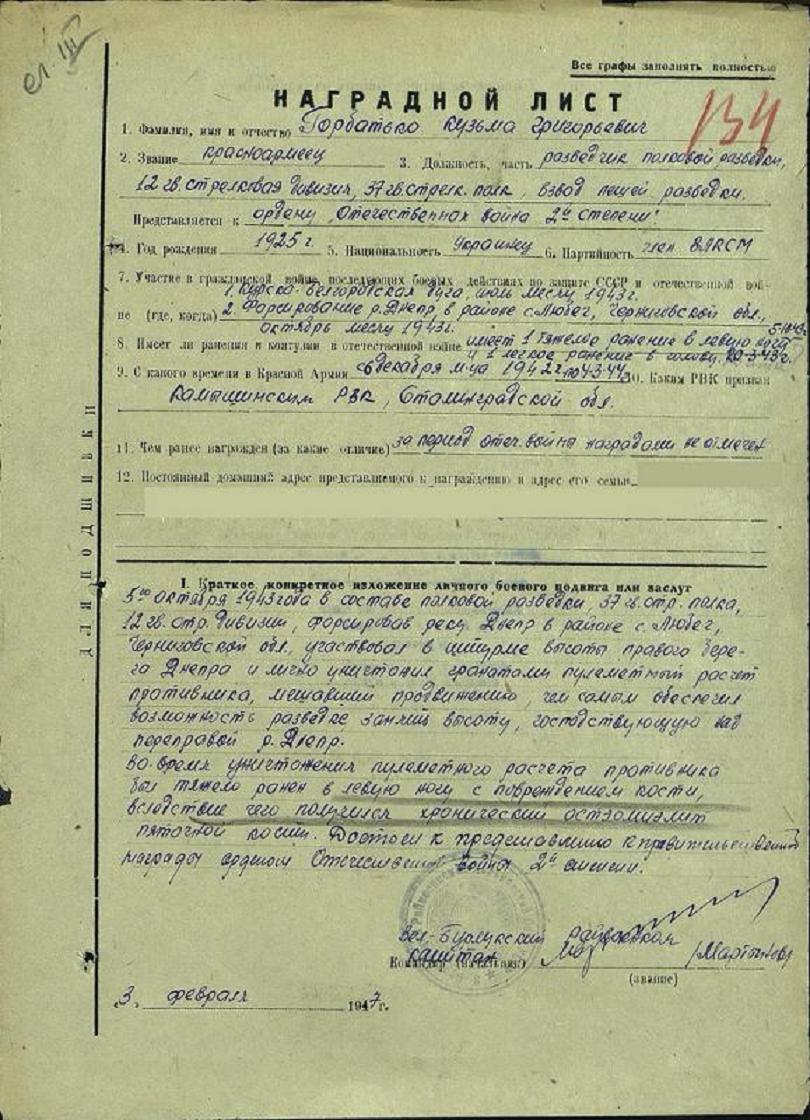 Все графы заполнять полностью
НАГРАДНОЙ ЛИСТ
134
1. Фамилия, имя и отчество Горбатько Кузьма Григорьевич
2. Звание красноармеец 3. Должность, часть разведчик полковой разведки,
12 гв. стрелковая дивизия, 37 гв. стрелк. полк, взвод пешей разведки.
Представляется к ордену „Отечественная война 2й степени"
4. Год рождения 1925 г. 5. Национальность Украинец 6. Партийность член ВЛКСМ
7. Участие в гражданской войне, последующих боевых действиях по защите СССР и отечественной вой-
1. Курско-Белгородская дуга, июль месяц 1943 г.
не (где, когда) 2. Форсирование р. Днепр, в районе с. Любеч, Черниговской обл.,
октябрь месяц 1943 г.
8. Имеет ли ранения и контузии в отечественной войне имеет 1 тяжелое ранение в левую ногу
и 1 легкое ранение в голову
9. С какого времени в Красной Армии с 6 декабря м-ца 1942 г. по 4-3-44 10. Каким РВК призван
Камышинским РВК, Сталинградской обл.
11. Чем ранее награжден (за какие отличие) за период отеч. война наградами не отмечен
12. Постоянный домашний адрес представляемого к награждению и адрес его семьи
ДЛЯ ПОДШИВКИ
I. Краткое, конкретное изложение личного боевого подвига или заслуг
5го октября 1943 года в составе полковой разведки, 37 гв. стр. полка,
12 гв. стр. дивизии, форсировав реку Днепр в районе с. Любеч,
Черниговской обл., участвовал в штурме высоты правого бере-
га Днепра и лично уничтожил гранатами пулеметный расчет
противника, мешавший продвижению, чем самым обеспечил
возможность разведке занять высоту, господствующую над
переправой р. Днепр.
Во время уничтожения пулеметного расчета противника
был тяжело ранен в левую ногу с повреждением кости,
вследствие чего получился хронический остеомиэлит
пяточной кости. Достоин к представлению к правительственной
награды орденом Отечественной война 2й степени.
Вел-Бурлукский райвоенком
капитан
Командир (начальник) /Мартынов/
(звание)
„3" февраля 1947 г.